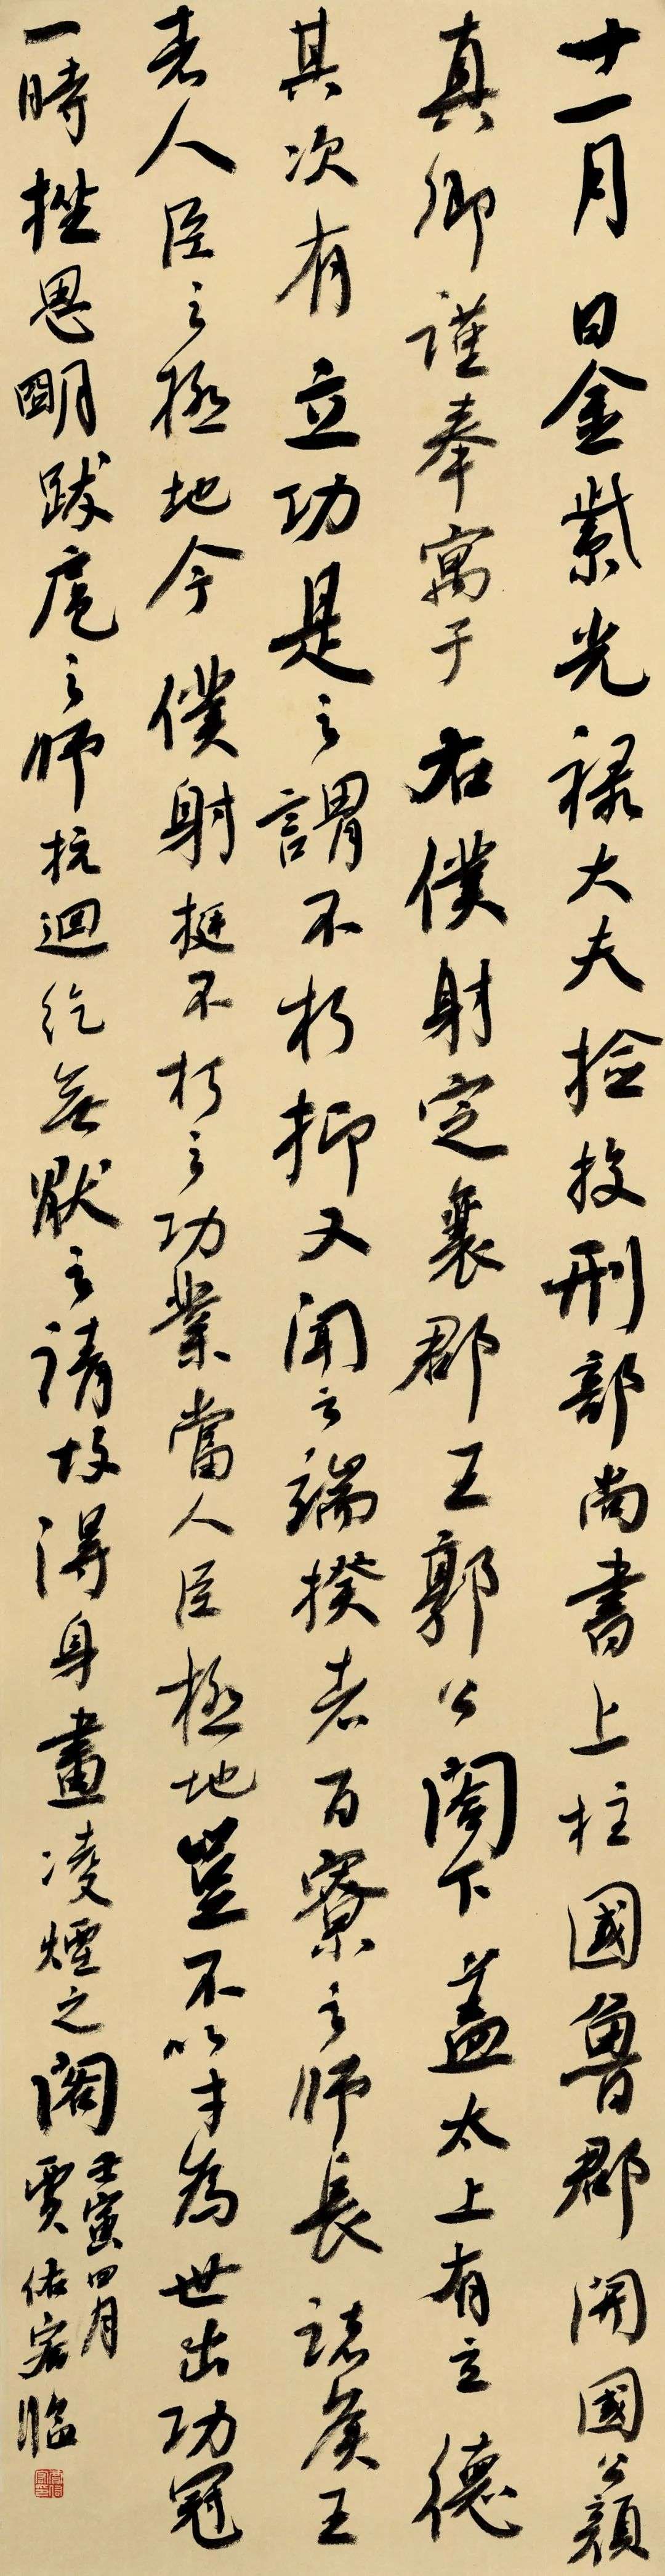 十一月日金紫光禄大夫捡挍刑部尚書上柱國魯郡開國公顔
真卿謹奉寓于右僕射定襄郡王郭公閣下蓋太上有立德
其次有立功是之謂不朽抑又聞之端揆者百寮之師長諸矦王
者人臣之極地今僕射挺不朽之功業當人臣極地豈不以才為世出功冠
一時挫思明跋扈之師抗迴紇無猒之請故得身畫凌煙之閣
壬寅四月
賈佑宏臨